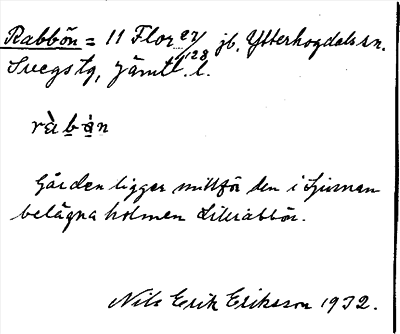 Rabbön = 11 Flor 27/128 jb, Ytterhogdals sn.
Svegs tg, Jämtl. l.
ràbån
Gården ligger mittför den i Ljusnan
belägna holmen Lillrabbön.
Nils Erik Eriksson 1932.